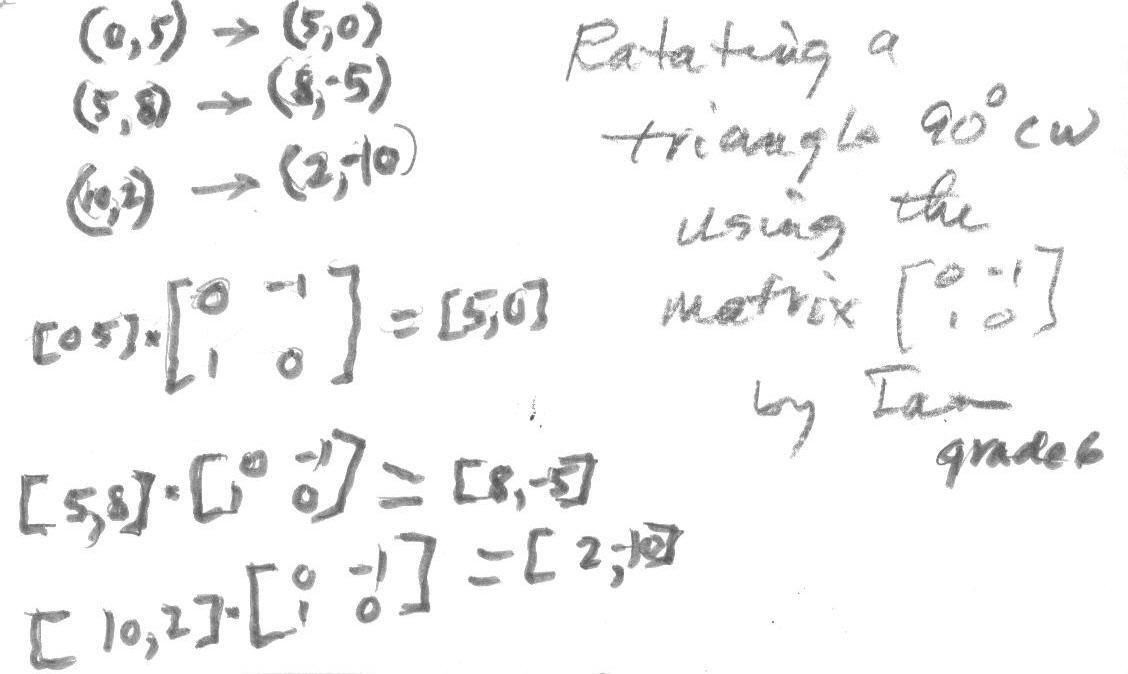 (0,5) → (5,0)
(5,8) → (8,-5)
(10,2) → (2,-10)
[0 5]·[0 -1
1 0] = [5,0]
[5,8]·[0 -1
1 0] = [8,-5]
[10,2]·[0 -1
1 0] = [2,-10]
Rotating a
triangle 90° cw
using the
matrix [0 -1
1 0]
by Ian
grade 6